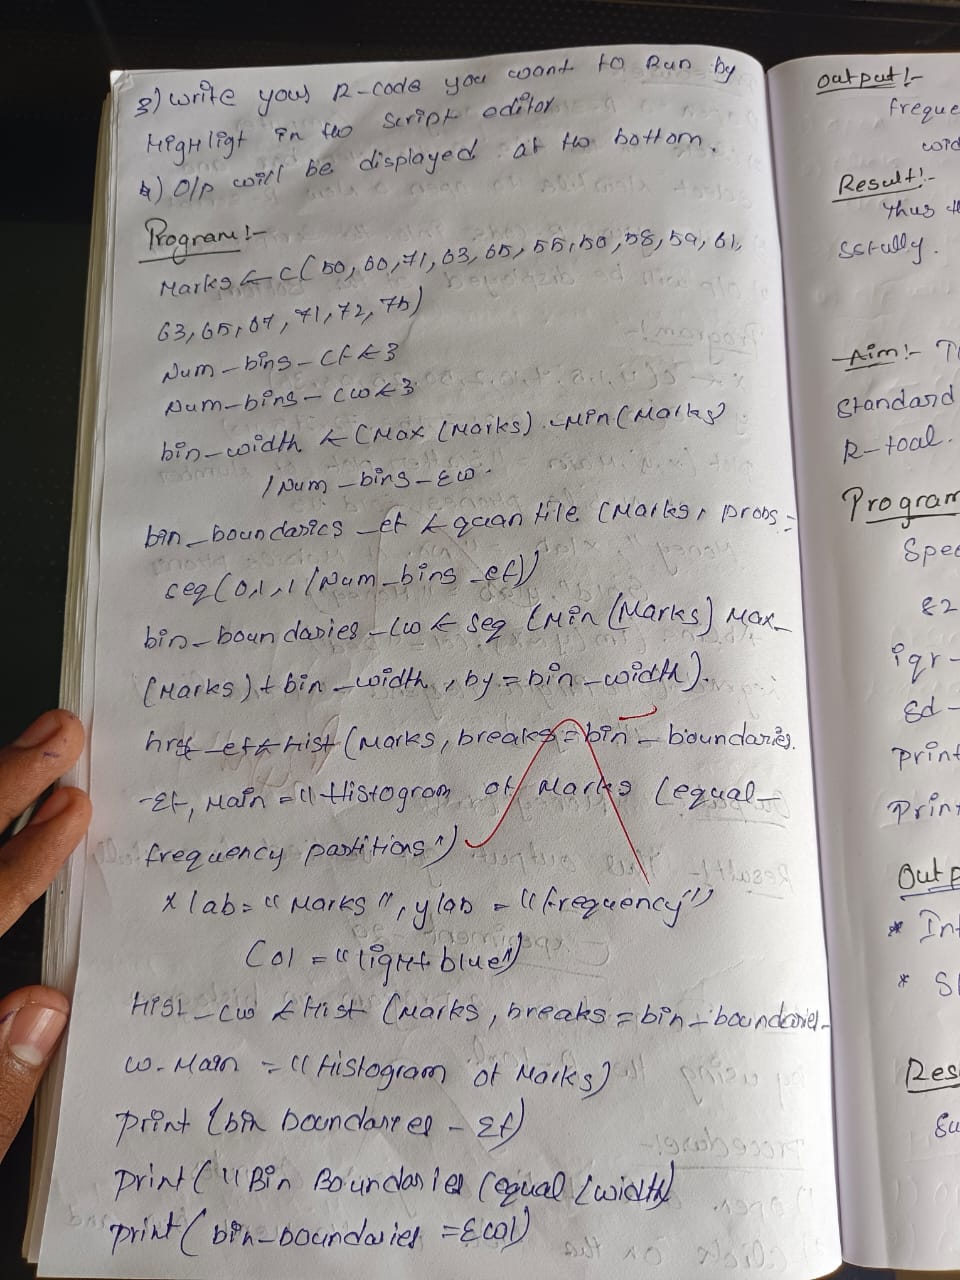 3) write your R-code you want to Run by
Highligt in the script editor
4) O/P will be displayed at the bottom.
Program!-
Marks <- c( 50, 60, 71, 63, 65, 55, 50, 58, 59, 61,
63, 65, 67, 71, 72, 75)
Num-bins-Cf <3
Num-bins-cw <3
bin-width <- (Max (Marks) - Min (Marks)
/ Num-bins-Ew.
bin_boundaries_ef <- quantile (Marks, probs =
seq(0,1,1/Num_bins_ef))
bin-boundaries-Cw <- seq (Min (Marks) Max_
(Marks) + bin-width, by = bin-width).
hist_ef <- Hist (Marks, breaks = bin-boundaries.
-Ef, Main = "Histogram of Marks (equal-
frequency partitions")
xlab = "Marks", ylab = "frequency")
Col = "light blue")
Hist_Cw <- Hist (Marks, breaks = bin-boundaries-
w. Main = "Histogram of Marks)
print (bin boundaries - Ef)
print ("Bin Boundaries (equal (width)
print( bin-boundaries = Ecol)
output!-
freque
wid
Result!-
Thus th
ssfully.
Aim!- T
Standard
R-toal.
Program
Spee
82
iqr-
Sd-
print
Print
Outp
* Int
*
Res
Su